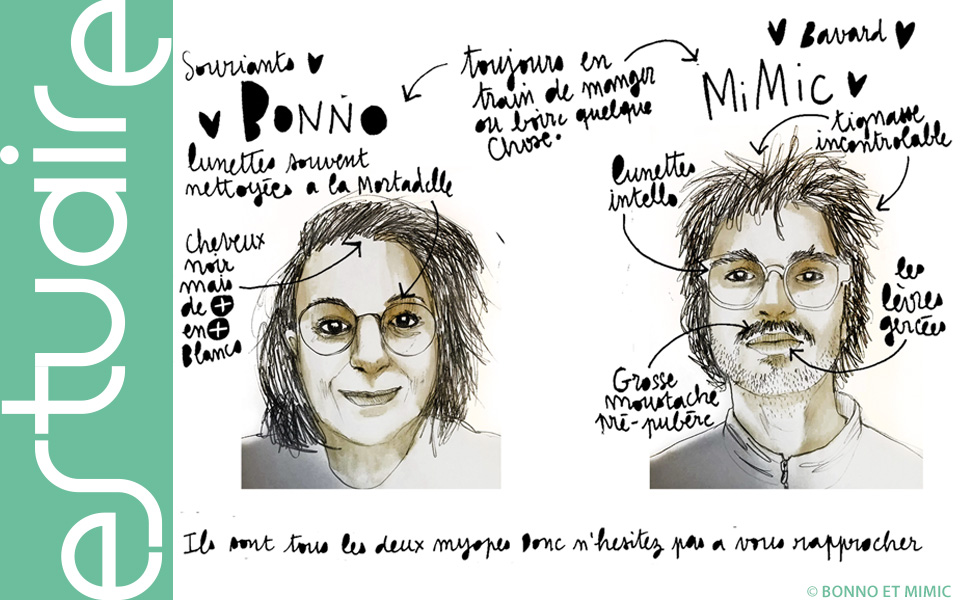 estuaire
Souriants
BONNO
lunettes souvent
nettoyées a la Mortadelle
toujours en
train de manger
ou boire quelque
chose.
Bavard
MiMiC
tignasse
incontrolable
lunettes
intello
cheveux
noir
mais
de +
en +
Blancs
les
lèvres
gercées
Grosse
moustache
pré-pubère
Ils sont tous les deux myopes Donc n'hesitez pas a vous rapprocher
© BONNO ET MIMIC